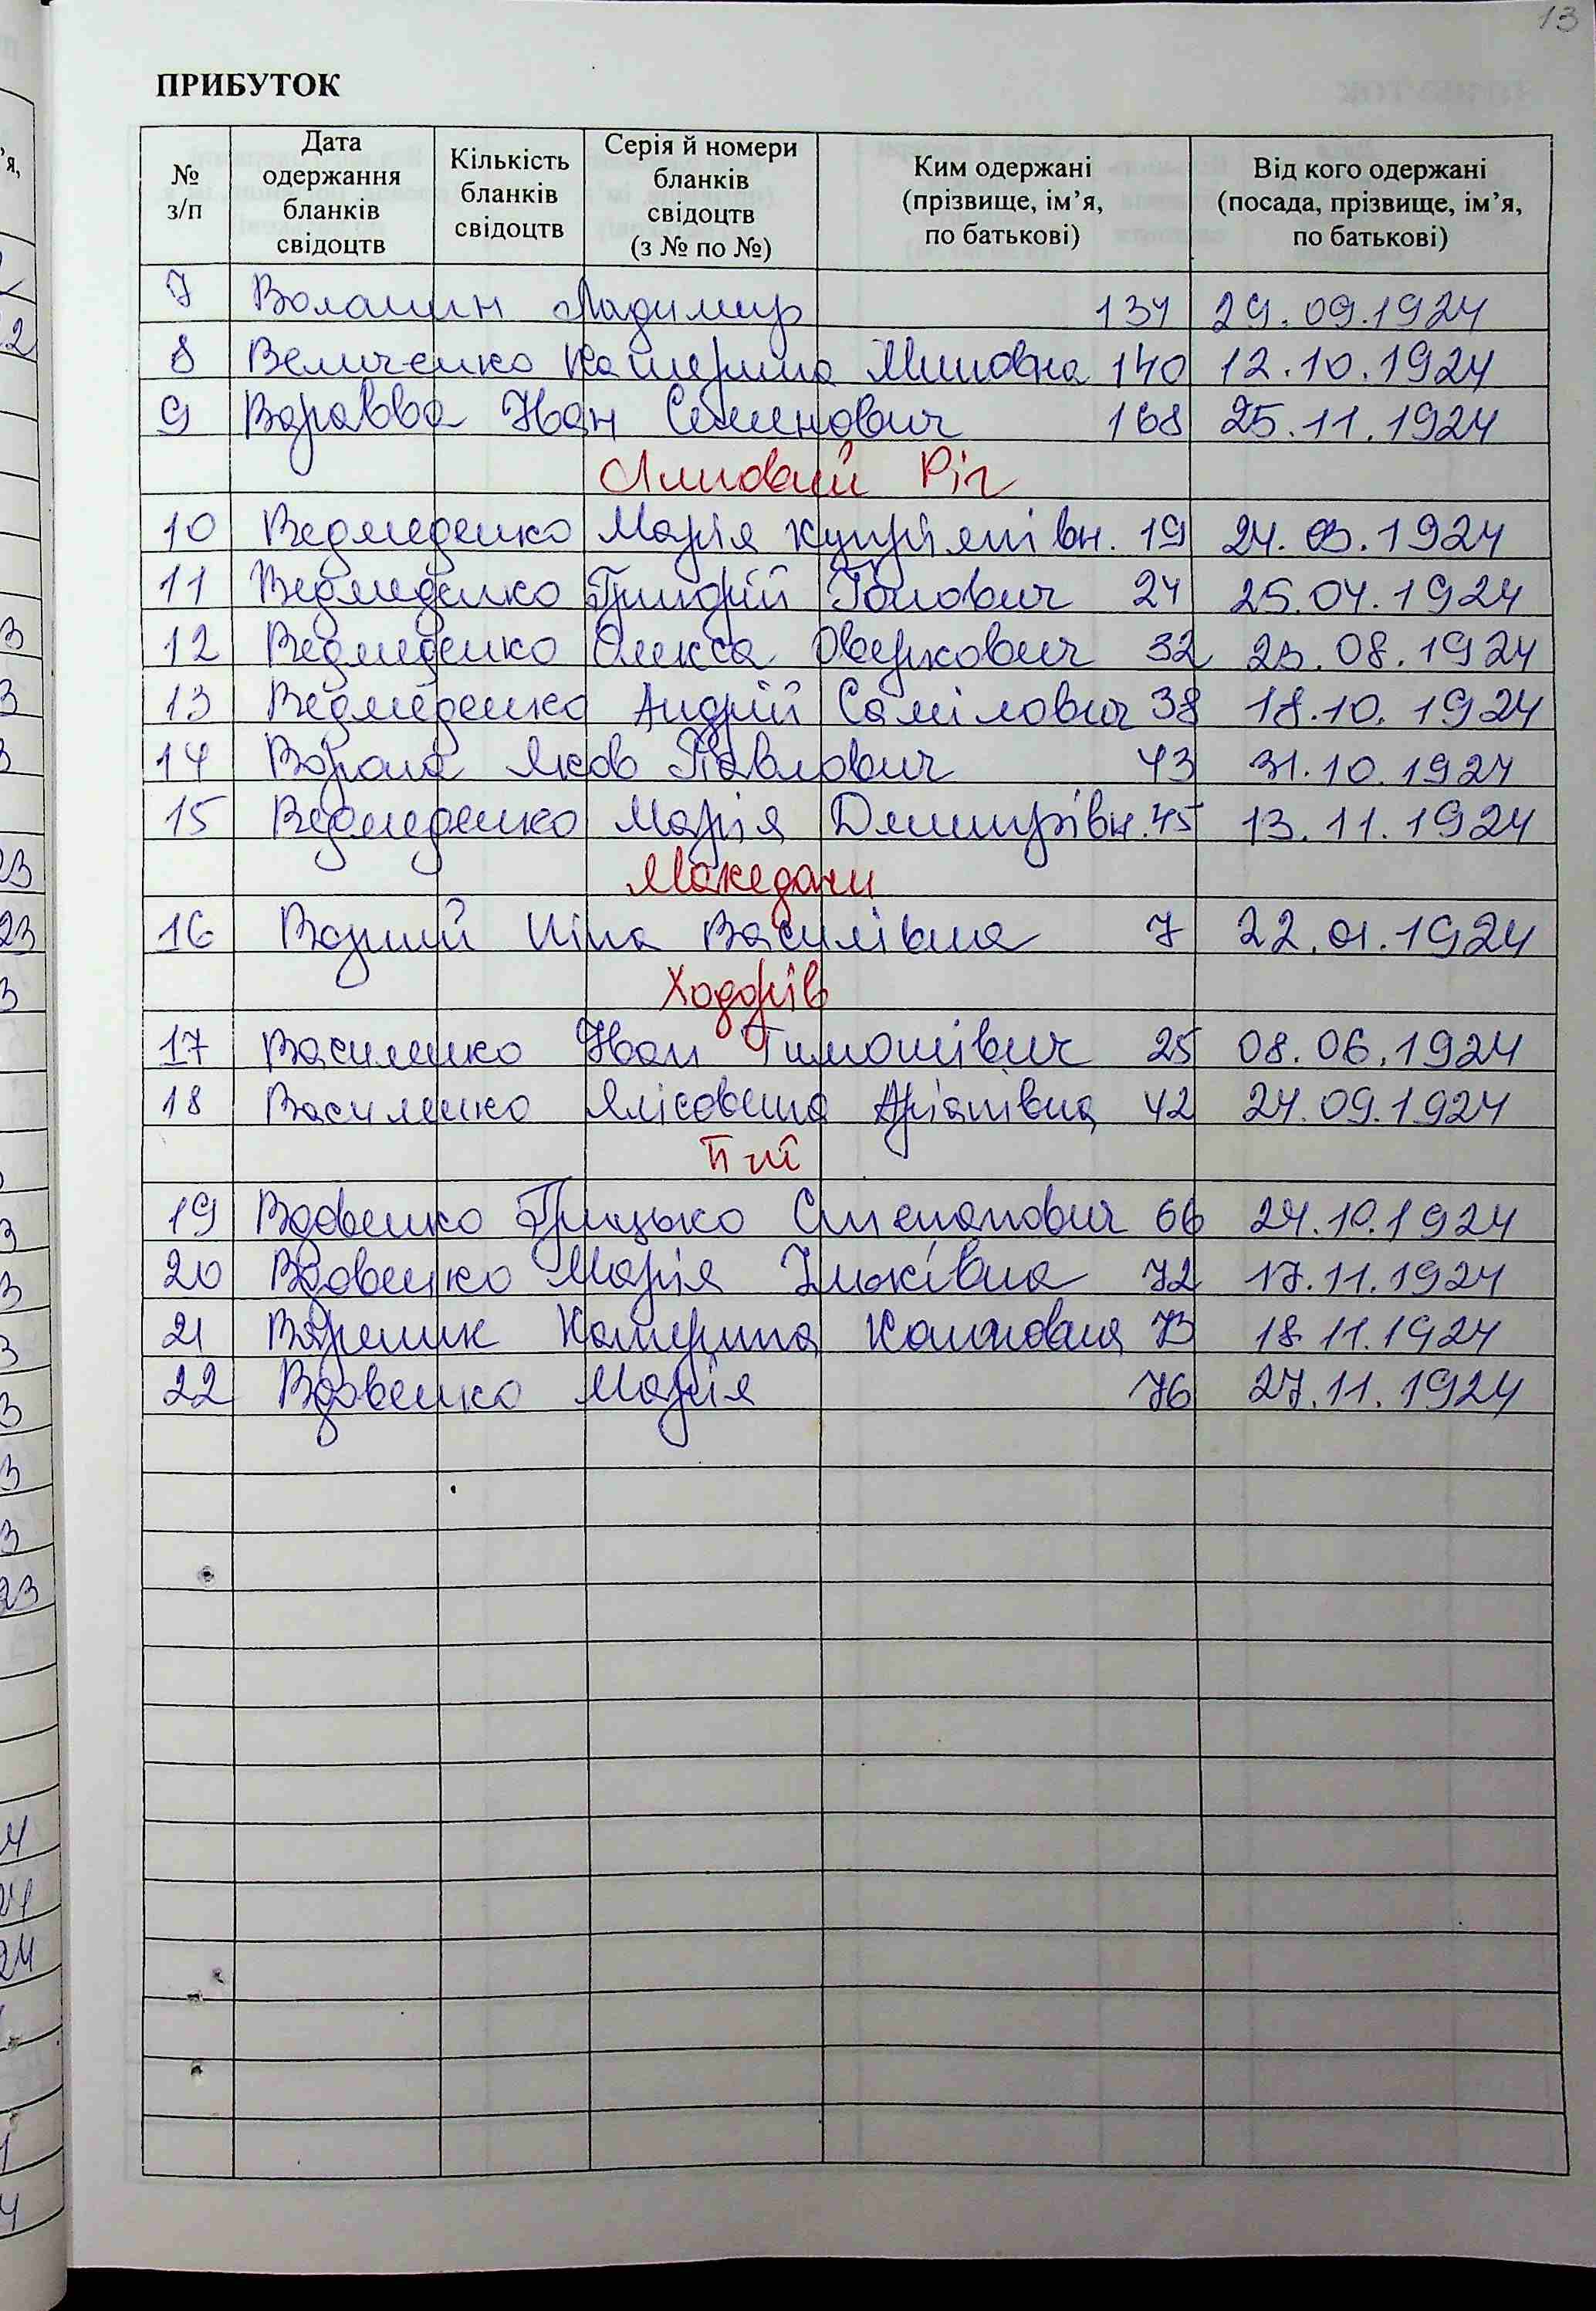 13
ПРИБУТОК
№ з/п
Дата одержання бланків свідоцтв
Кількість бланків свідоцтв
Серія й номери бланків свідоцтв (з № по №)
Ким одержані (прізвище, ім’я, по батькові)
Від кого одержані (посада, прізвище, ім’я, по батькові)
7 Волошин Ладимир 134 29.09.1924
8 Величенко Катерина Минівна 140 12.10.1924
9 Варавва Иван Семенович 168 25.11.1924
Липовий Ріг
10 Ведмеденко Марія Купріянівн. 19 24.03.1924
11 Ведмеденко Григорій 24 25.04.1924
12 Ведмеденко Олекса Оверкович 32 23.08.1924
13 Ведмеденко Андрій Самілович 38 18.10.1924
14 Ворона Яков Павлович 43 31.10.1924
15 Ведмеденко Марія Дмитрівн. 45 13.11.1924
Македони
16 Ніна Василівна 7 22.01.1924
Ходорів
17 Василенко Иван Тимошівич 25 08.06.1924
18 Василенко Ялісовета 42 24.09.1924
Пії
19 Вдовенко Грицько Степанович 66 24.10.1924
20 Вдовенко Марія 72 17.11.1924
21 Катерина 73 18.11.1924
22 Вдовенко Марія 76 27.11.1924